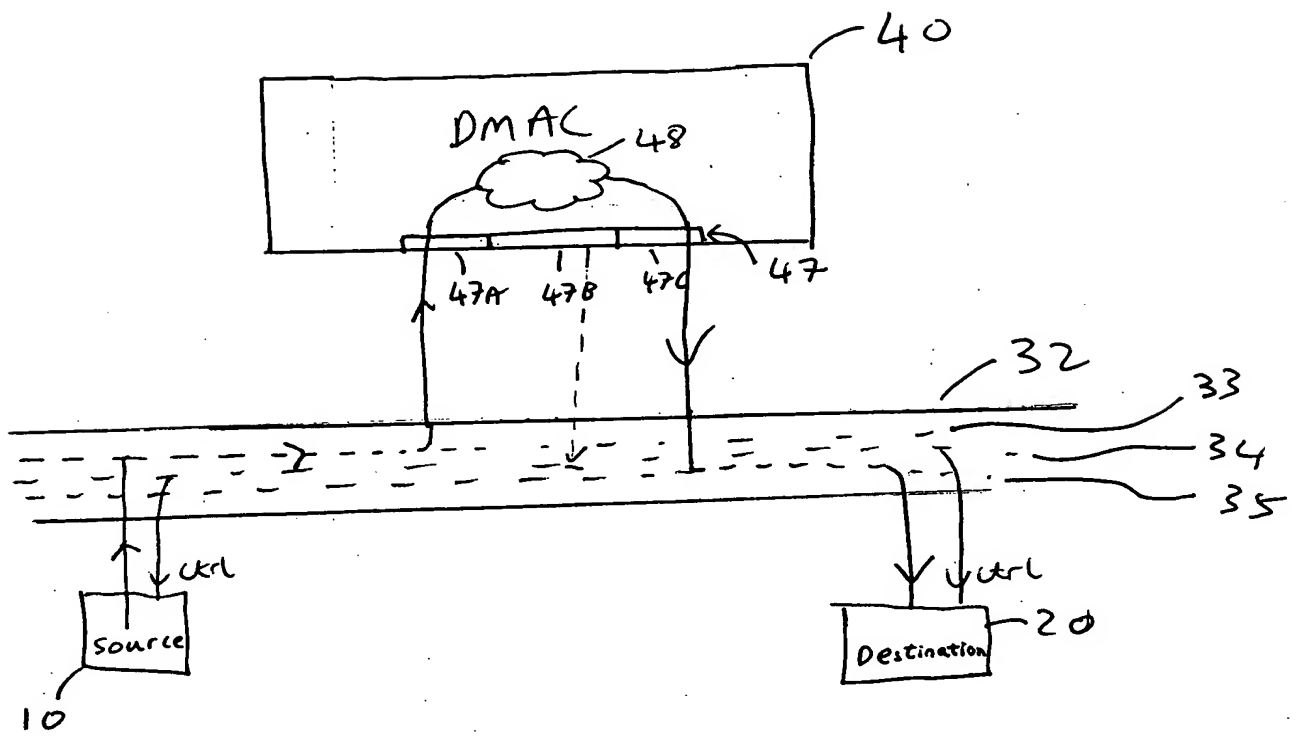 40
DMAC
48
47
47A 47B 47C
32
33
34
35
ctrl
ctrl
Source
Destination
20
10